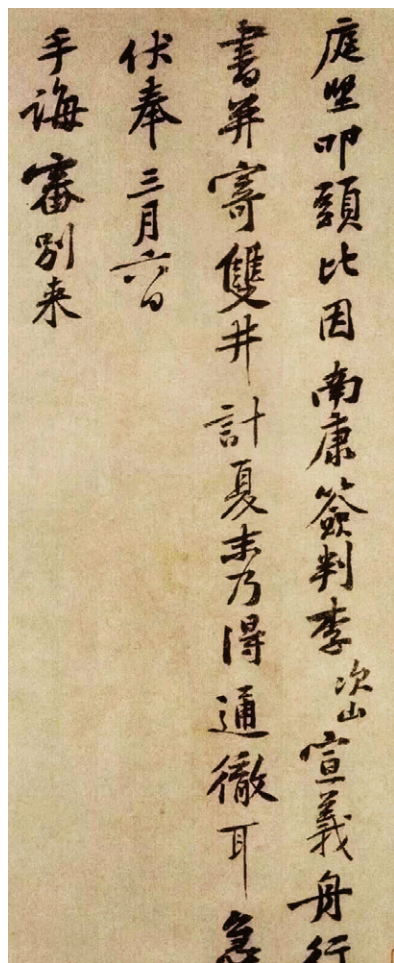 庭堅叩頭比因南康簽判李次山宣義舟行
書并寄雙井計夏末乃得通徹耳急
伏奉三月六日
手誨審別來